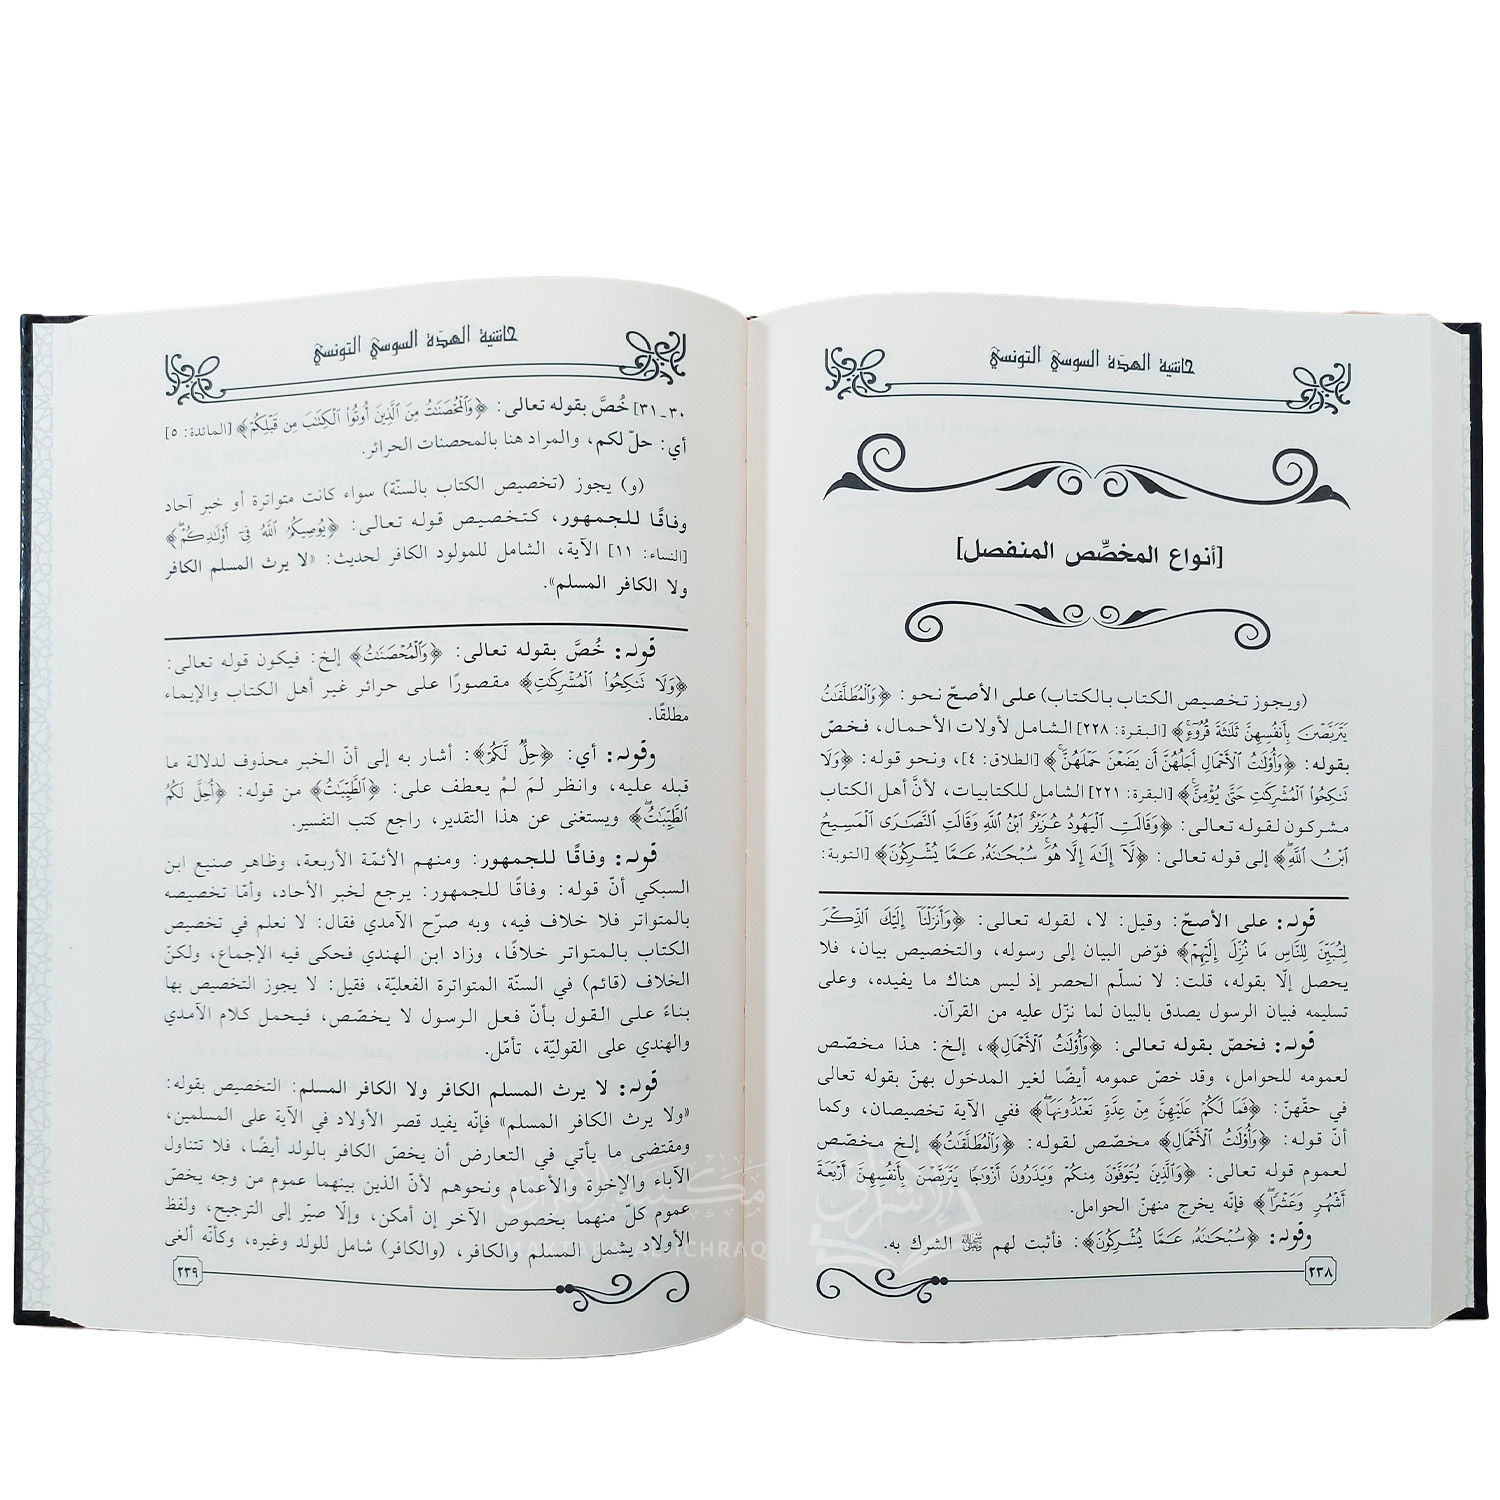 حاشية الهدّة السوسي التونسي
[أنواع المخصِّص المنفصل]
(ويجوز تخصيص الكتاب بالكتاب) على الأصحّ نحو: ﴿وَٱلْمُطَلَّقَٰتُ
يَتَرَبَّصْنَ بِأَنفُسِهِنَّ ثَلَٰثَةَ قُرُوٓءٍ﴾ [البقرة: ٢٢٨] الشامل لأولات الأحمال، فخصّ
بقوله: ﴿وَأُوْلَٰتُ ٱلْأَحْمَالِ أَجَلُهُنَّ أَن يَضَعْنَ حَمْلَهُنَّ﴾ [الطلاق: ٤]، ونحو قوله: ﴿وَلَا
تَنكِحُوا۟ ٱلْمُشْرِكَٰتِ حَتَّىٰ يُؤْمِنَّ﴾ [البقرة: ٢٢١] الشامل للكتابيات، لأنَّ أهل الكتاب
مشركون لقوله تعالى: ﴿وَقَالَتِ ٱلْيَهُودُ عُزَيْرٌ ٱبْنُ ٱللَّهِ وَقَالَتِ ٱلنَّصَٰرَى ٱلْمَسِيحُ
ٱبْنُ ٱللَّهِ﴾ إلى قوله تعالى: ﴿لَّآ إِلَٰهَ إِلَّا هُوَ سُبْحَٰنَهُۥ عَمَّا يُشْرِكُونَ﴾ [التوبة:
قوله: على الأصحّ: وقيل: لا، لقوله تعالى: ﴿وَأَنزَلْنَآ إِلَيْكَ ٱلذِّكْرَ
لِتُبَيِّنَ لِلنَّاسِ مَا نُزِّلَ إِلَيْهِمْ﴾ فوّض البيان إلى رسوله، والتخصيص بيان، فلا
يحصل إلّا بقوله، قلت: لا نسلّم الحصر إذ ليس هناك ما يفيده، وعلى
تسليمه فبيان الرسول يصدق بالبيان لما نزّل عليه من القرآن.
قوله: فخصّ بقوله تعالى: ﴿وَأُوْلَٰتُ ٱلْأَحْمَالِ﴾، إلخ: هذا مخصّص
لعمومه للحوامل، وقد خصّ عمومه أيضًا لغير المدخول بهنّ بقوله تعالى
في حقّهنّ: ﴿فَمَا لَكُمْ عَلَيْهِنَّ مِنْ عِدَّةٍ تَعْتَدُّونَهَا﴾ ففي الآية تخصيصان، وكما
أنّ قوله: ﴿وَأُوْلَٰتُ ٱلْأَحْمَالِ﴾ مخصّص لقوله: ﴿وَٱلْمُطَلَّقَٰتُ﴾ إلخ مخصّص
لعموم قوله تعالى: ﴿وَٱلَّذِينَ يُتَوَفَّوْنَ مِنكُمْ وَيَذَرُونَ أَزْوَٰجًا يَتَرَبَّصْنَ بِأَنفُسِهِنَّ أَرْبَعَةَ
أَشْهُرٍ وَعَشْرًا﴾ فإنّه يخرج منهنّ الحوامل.
وقوله: ﴿سُبْحَٰنَهُۥ عَمَّا يُشْرِكُونَ﴾: فأثبت لهم ﷺ الشرك به.
٢٣٨
حاشية الهدّة السوسي التونسي
٣٠ـ٣١] خُصَّ بقوله تعالى: ﴿وَٱلْمُحْصَنَٰتُ مِنَ ٱلَّذِينَ أُوتُوا۟ ٱلْكِتَٰبَ مِن قَبْلِكُمْ﴾ [المائدة: ٥]
أي: حلّ لكم، والمراد هنا بالمحصنات الحرائر.
(و) يجوز (تخصيص الكتاب بالسنّة) سواء كانت متواترة أو خبر آحاد
وفاقًا للجمهور، كتخصيص قوله تعالى: ﴿يُوصِيكُمُ ٱللَّهُ فِىٓ أَوْلَٰدِكُمْ﴾
[النساء: ١١] الآية، الشامل للمولود الكافر لحديث: «لا يرث المسلم الكافر
ولا الكافر المسلم».
قوله: خُصَّ بقوله تعالى: ﴿وَٱلْمُحْصَنَٰتُ﴾ إلخ: فيكون قوله تعالى:
﴿وَلَا تَنكِحُوا۟ ٱلْمُشْرِكَٰتِ﴾ مقصورًا على حرائر غير أهل الكتاب والإماء
مطلقًا.
وقوله: أي: ﴿حِلٌّ لَّكُمْ﴾: أشار به إلى أنّ الخبر محذوف لدلالة ما
قبله عليه، وانظر لمَ لمْ يعطف على: ﴿ٱلطَّيِّبَٰتُ﴾ من قوله: ﴿أُحِلَّ لَكُمُ
ٱلطَّيِّبَٰتُ﴾ ويستغنى عن هذا التقدير، راجع كتب التفسير.
قوله: وفاقًا للجمهور: ومنهم الأئمّة الأربعة، وظاهر صنيع ابن
السبكي أنّ قوله: وفاقًا للجمهور: يرجع لخبر الآحاد، وأمّا تخصيصه
بالمتواتر فلا خلاف فيه، وبه صرّح الآمدي فقال: لا نعلم في تخصيص
الكتاب بالمتواتر خلافًا، وزاد ابن الهندي فحكى فيه الإجماع، ولكنّ
الخلاف (قائم) في السنّة المتواترة الفعليّة، فقيل: لا يجوز التخصيص بها
بناءً على القول بأنّ فعل الرسول لا يخصّص، فيحمل كلام الآمدي
والهندي على القوليّة، تأمّل.
قوله: لا يرث المسلم الكافر ولا الكافر المسلم: التخصيص بقوله:
«ولا يرث الكافر المسلم» فإنّه يفيد قصر الأولاد في الآية على المسلمين،
ومقتضى ما يأتي في التعارض أن يخصّ الكافر بالولد أيضًا، فلا تتناول
الآباء والإخوة والأعمام ونحوهم لأنّ الذين بينهما عموم من وجه يخصّ
عموم كلّ منهما بخصوص الآخر إن أمكن، وإلّا صيّر إلى الترجيح، ولفظ
الأولاد يشمل المسلم والكافر، (والكافر) شامل للولد وغيره، وكأنّه ألغى
٢٣٩
مكتبة الإشراق
MAKTABA AL-ICHRAQ